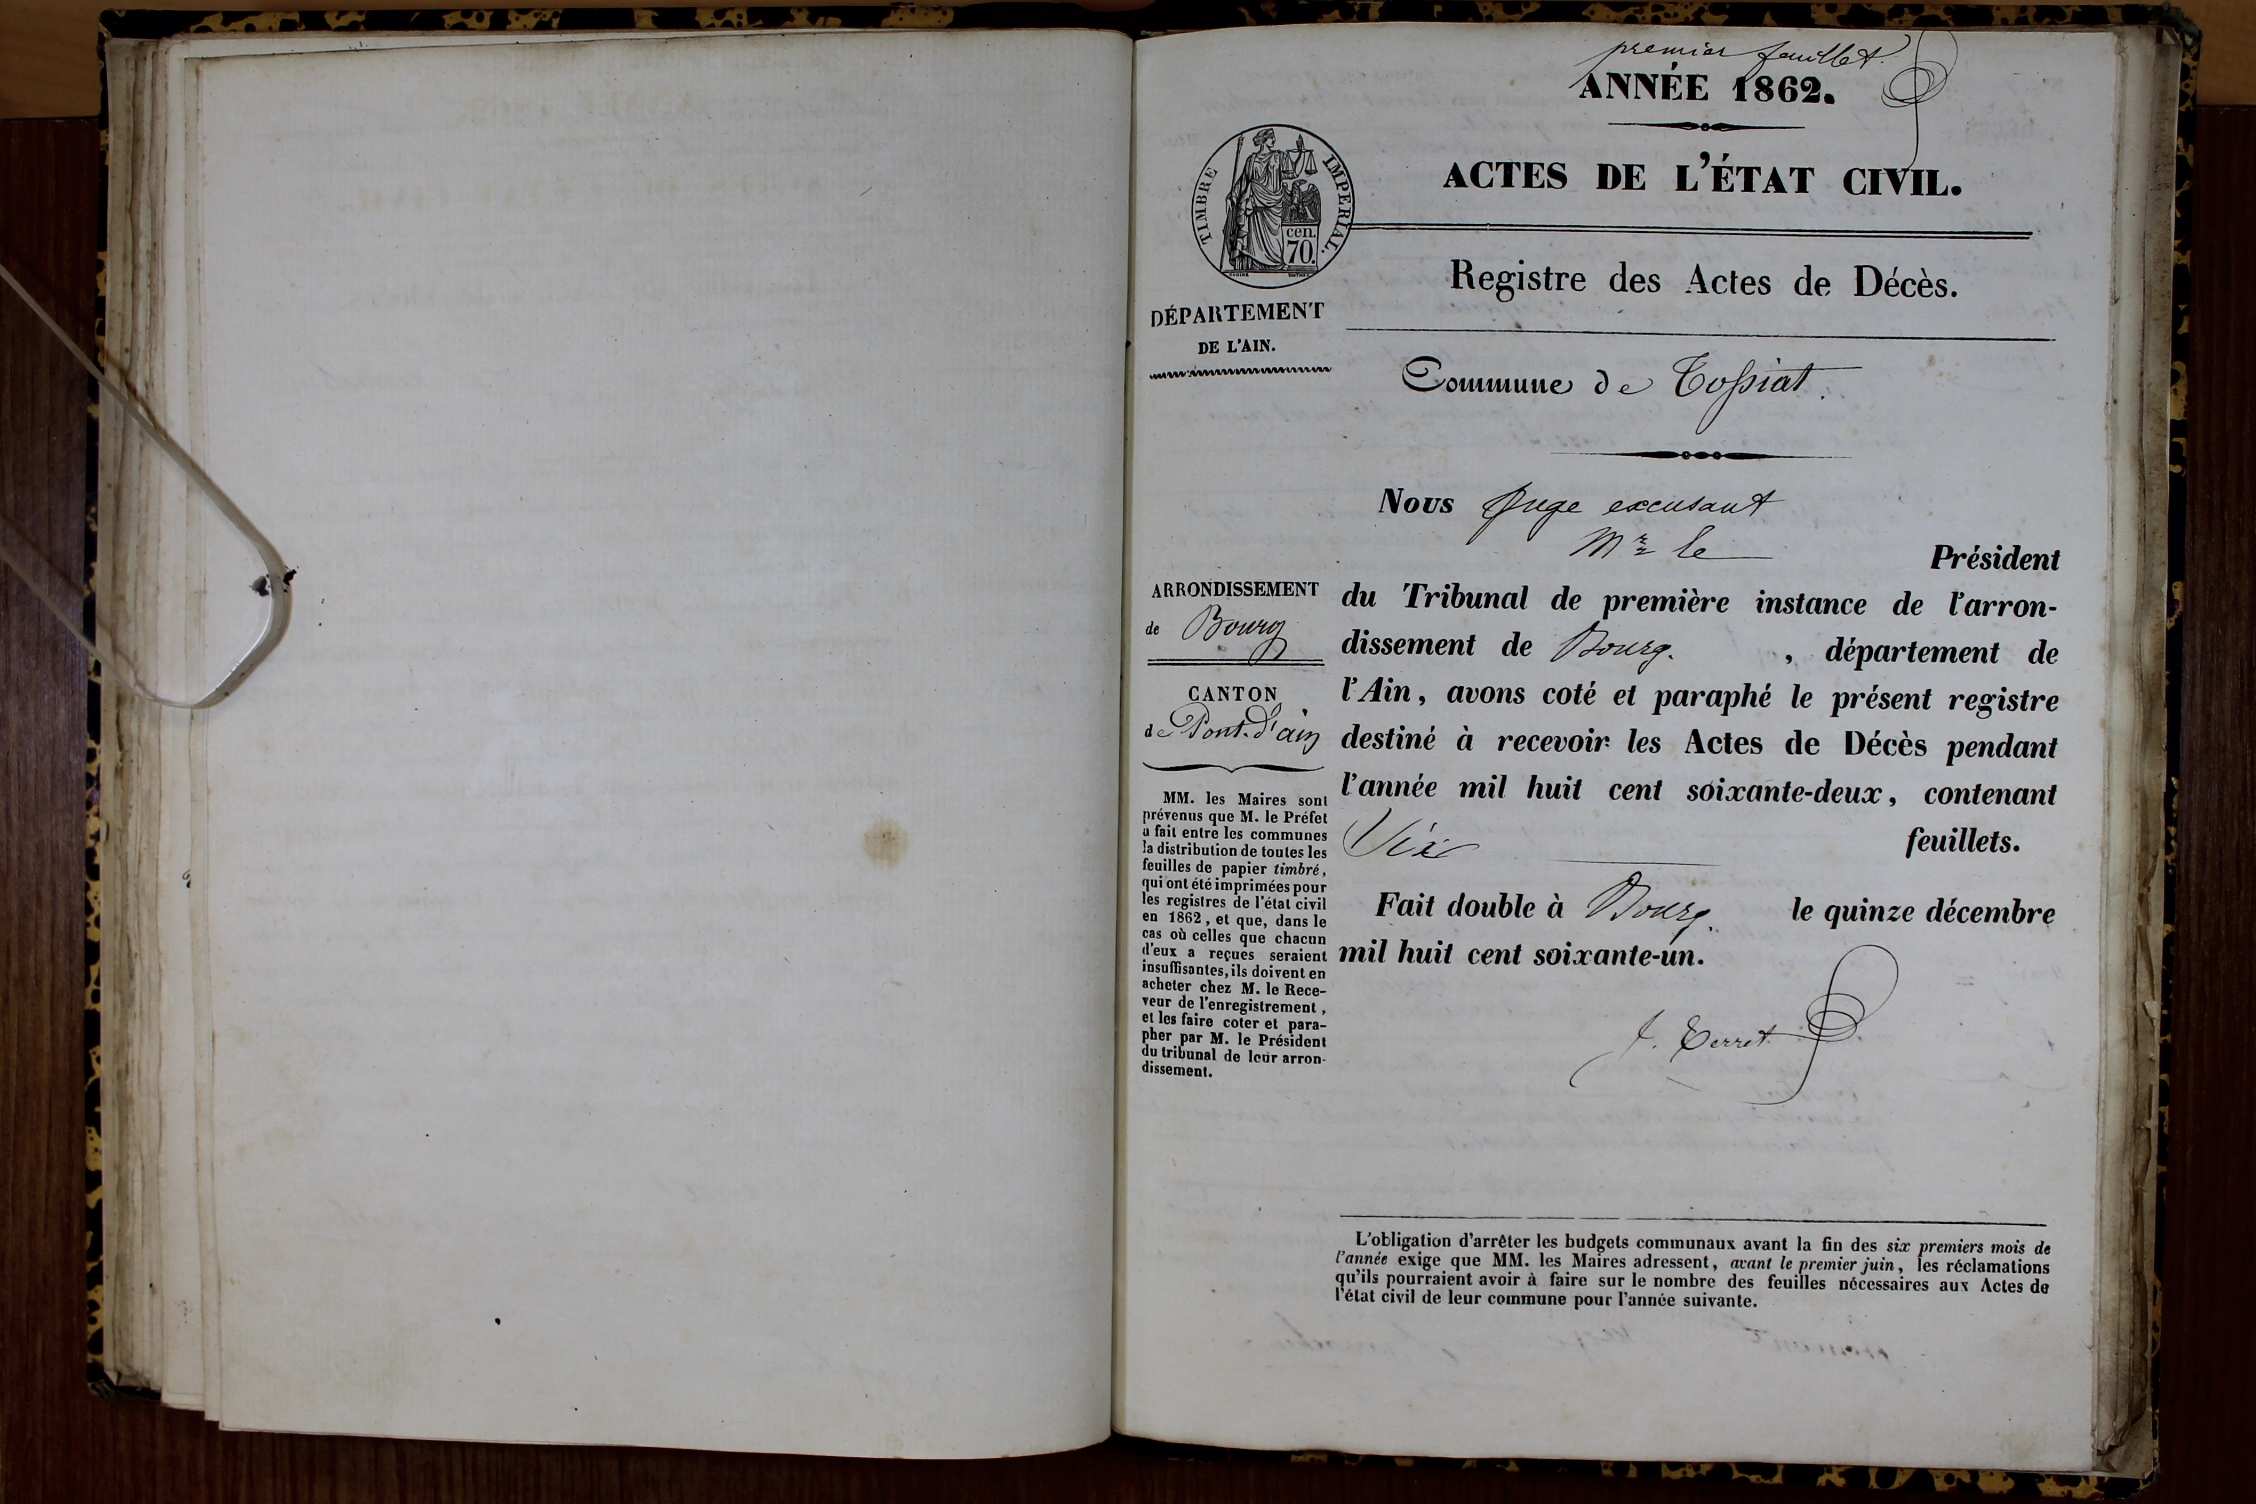 premier feuillet.
ANNÉE 1862.
ACTES DE L'ÉTAT CIVIL.
TIMBRE IMPERIAL.
cen.
70.
Registre des Actes de Décès.
DÉPARTEMENT
DE L'AIN.
Commune de Tossiat.
Nous Juge excusant
Mr le Président
du Tribunal de première instance de l'arron-
dissement de Bourg. , département de
l'Ain, avons coté et paraphé le présent registre
destiné à recevoir les Actes de Décès pendant
l'année mil huit cent soixante-deux, contenant
feuillets.
Fait double à Bourg. le quinze décembre
mil huit cent soixante-un.
ARRONDISSEMENT
de Bourg
CANTON
de Pont-d'ain
MM. les Maires sont
prévenus que M. le Préfet
a fait entre les communes
la distribution de toutes les
feuilles de papier timbré,
qui ont été imprimées pour
les registres de l'état civil
en 1862, et que, dans le
cas où celles que chacun
d'eux a reçues seraient
insuffisantes, ils doivent en
acheter chez M. le Rece-
veur de l'enregistrement,
et les faire coter et para-
pher par M. le Président
du tribunal de leur arron-
dissement.
Terret
L'obligation d'arrêter les budgets communaux avant la fin des six premiers mois de
l'année exige que MM. les Maires adressent, avant le premier juin, les réclamations
qu'ils pourraient avoir à faire sur le nombre des feuilles nécessaires aux Actes de
l'état civil de leur commune pour l'année suivante.